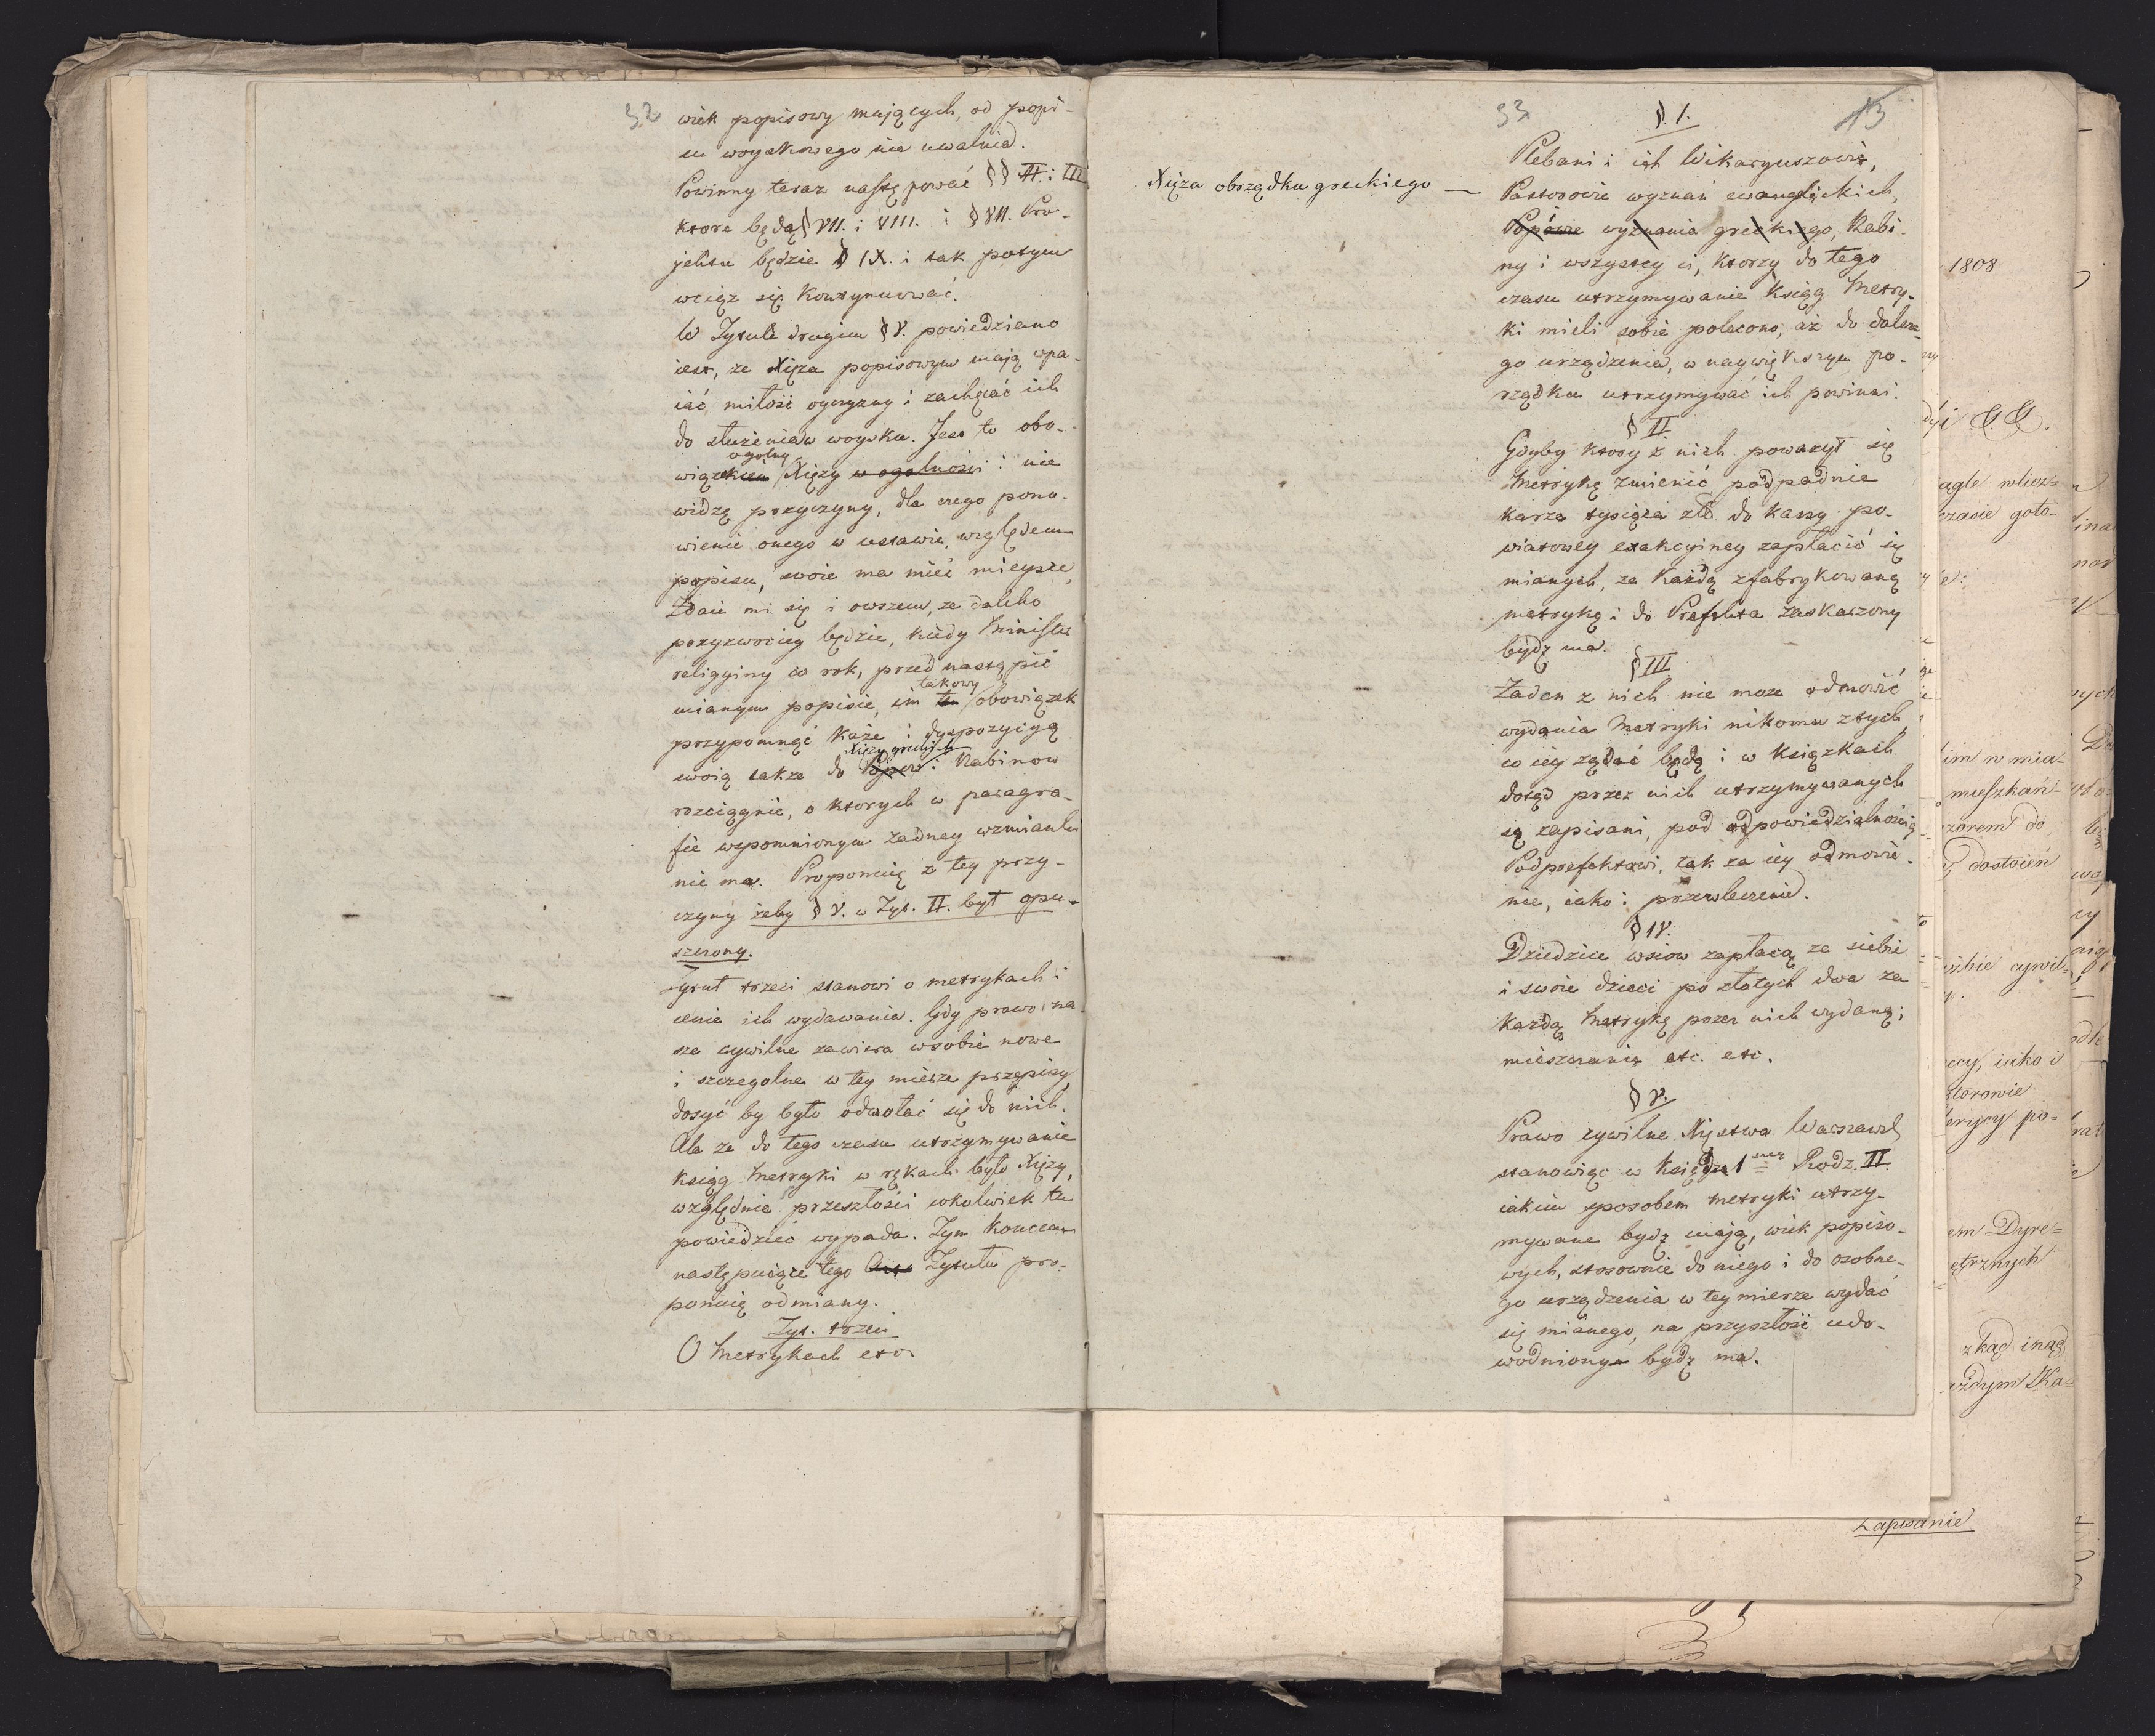 32
wiek popisowy mających, od popi-
su woyskowego nie uwalnia.
Powinny teraz następować §§ II. i III
ktore będą § VII. i VIII. i § VII. Pro-
jektu będzie § IX. i tak potym
wciąz się kontynuować.
W Tytule drugim § V. powiedziano
iest, ze Xięza popisowym mają wpa-
iać miłość oyczyzny i zachęcać ich
do służenia w woysku. Jest to obo-
ogolny
wiązkiem Xięzy w ogolności i nie
widzę przyczyny, dla czego pono-
wienie onego w ustawie, względem
popisu, swoie ma mieć mieysce,
Zdaie mi się i owszem, ze daleko
przyzwoiciey będzie, kiedy Minister
religiyny co rok, przed nastąpić
takowy
mianym popisie, im ten obowiązek
przypomnąć każe i dyspozycyą
Xięzy greckich
swoią takze do Popow i Rabinow
rozciągnie, o ktorych w paragra-
fie wspomnionym zadney wzmianki
nie ma. Proponuię z tey przy-
czyny żeby § V. w Tyt. II. był opu-
szczony.
Tytuł trzeci stanowi o metrykach i
cenie ich wydawania. Gdy prawo na-
sze cywilne zawiera w sobie nowe
i szczegolne w tey mierze przepisy,
dosyć by było odwołać się do nich.
Ale ze do tego czasu utrzymywanie
ksiąg Metryki w rękach było Xięzy,
względnie przeszłości cokolwiek tu
powiedzieć wypada. Tym koncem
następuiące tego Tytułu pro-
ponuię odmiany.
Tyt. trzeci
O Metrykach etc.
33
13
§. I.
Plebani i ich Wikaryuszowie,
Xięza obrządku greckiego —
Pastorowie wyznań ewangielickich,
Popowie wyznania greckiego, Rabi-
ny i wszyscy ci, ktorzy do tego
czasu utrzymywanie ksiąg Metry-
ki mieli sobie polecono, aż do dalsze-
go urządzenia, w naywiększym po-
rządku utrzymywać ich powinni.
§ II
Gdyby ktory z nich powazył się
Metrykę zmienić podpadnie
karze tysiąca złł. do kassy po-
wiatowey exakcyiney zapłacić się
mianych, za każdą zfabrykowaną
metrykę i do Prefekta zaskarzony
bydź ma.
§ III
Zaden z nich nie moze odmowić
wydania Metryki nikomu z tych,
co iey ządać będą i w książkach
dotąd przez nich utrzymywanych
są zapisani, pod odpowiedzialnością
Podprefektowi, tak za iey odmowie-
nie, iako i przewleczenie.
§ IV.
Dziedzice wsiow zapłacą za siebie
i swoie dzieci po złotych dwa za
każdą Metrykę przez nich wydaną;
mieszczanie etc. etc.
§ V.
Prawo cywilne Xięstwa Warszawsk
stanowiąc w Księdze 1 Rodz. II.
iakim sposobem Metryki utrzy-
mywane bydź maią, wiek popiso-
wych, stosownie do niego i do osobne-
go urządzenia w tey mierze wydać
się mianego, na przyszłość udo-
wodnionym bydź ma.
1808
ągle wlicz=
czasie goto-
im w mia-
mieszkań-
zorem do
dostoień
użbie cywil=
cy, iako i
storowie
erycy po=
em Dyre=
ętrznych
zkąd inąd
ażdym Ka=
Zapisanie